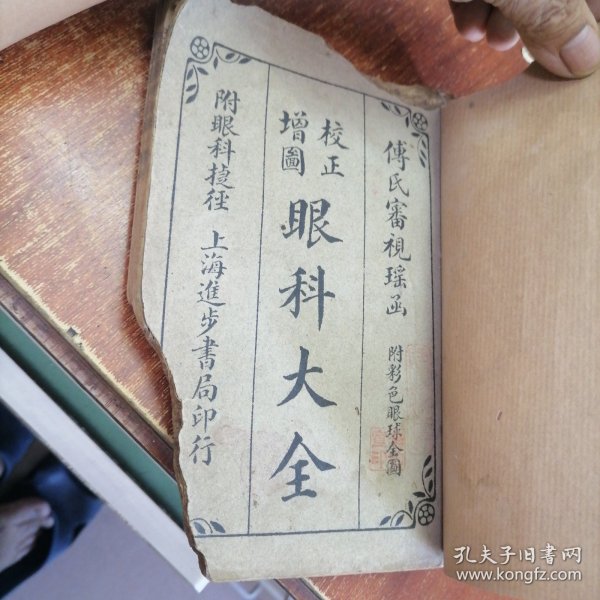 傅氏審視瑤函 附彩色眼球全圖
校正
增圖
眼科大全
附眼科捷徑 上海進步書局印行
孔夫子旧書网
www.kongfz.com